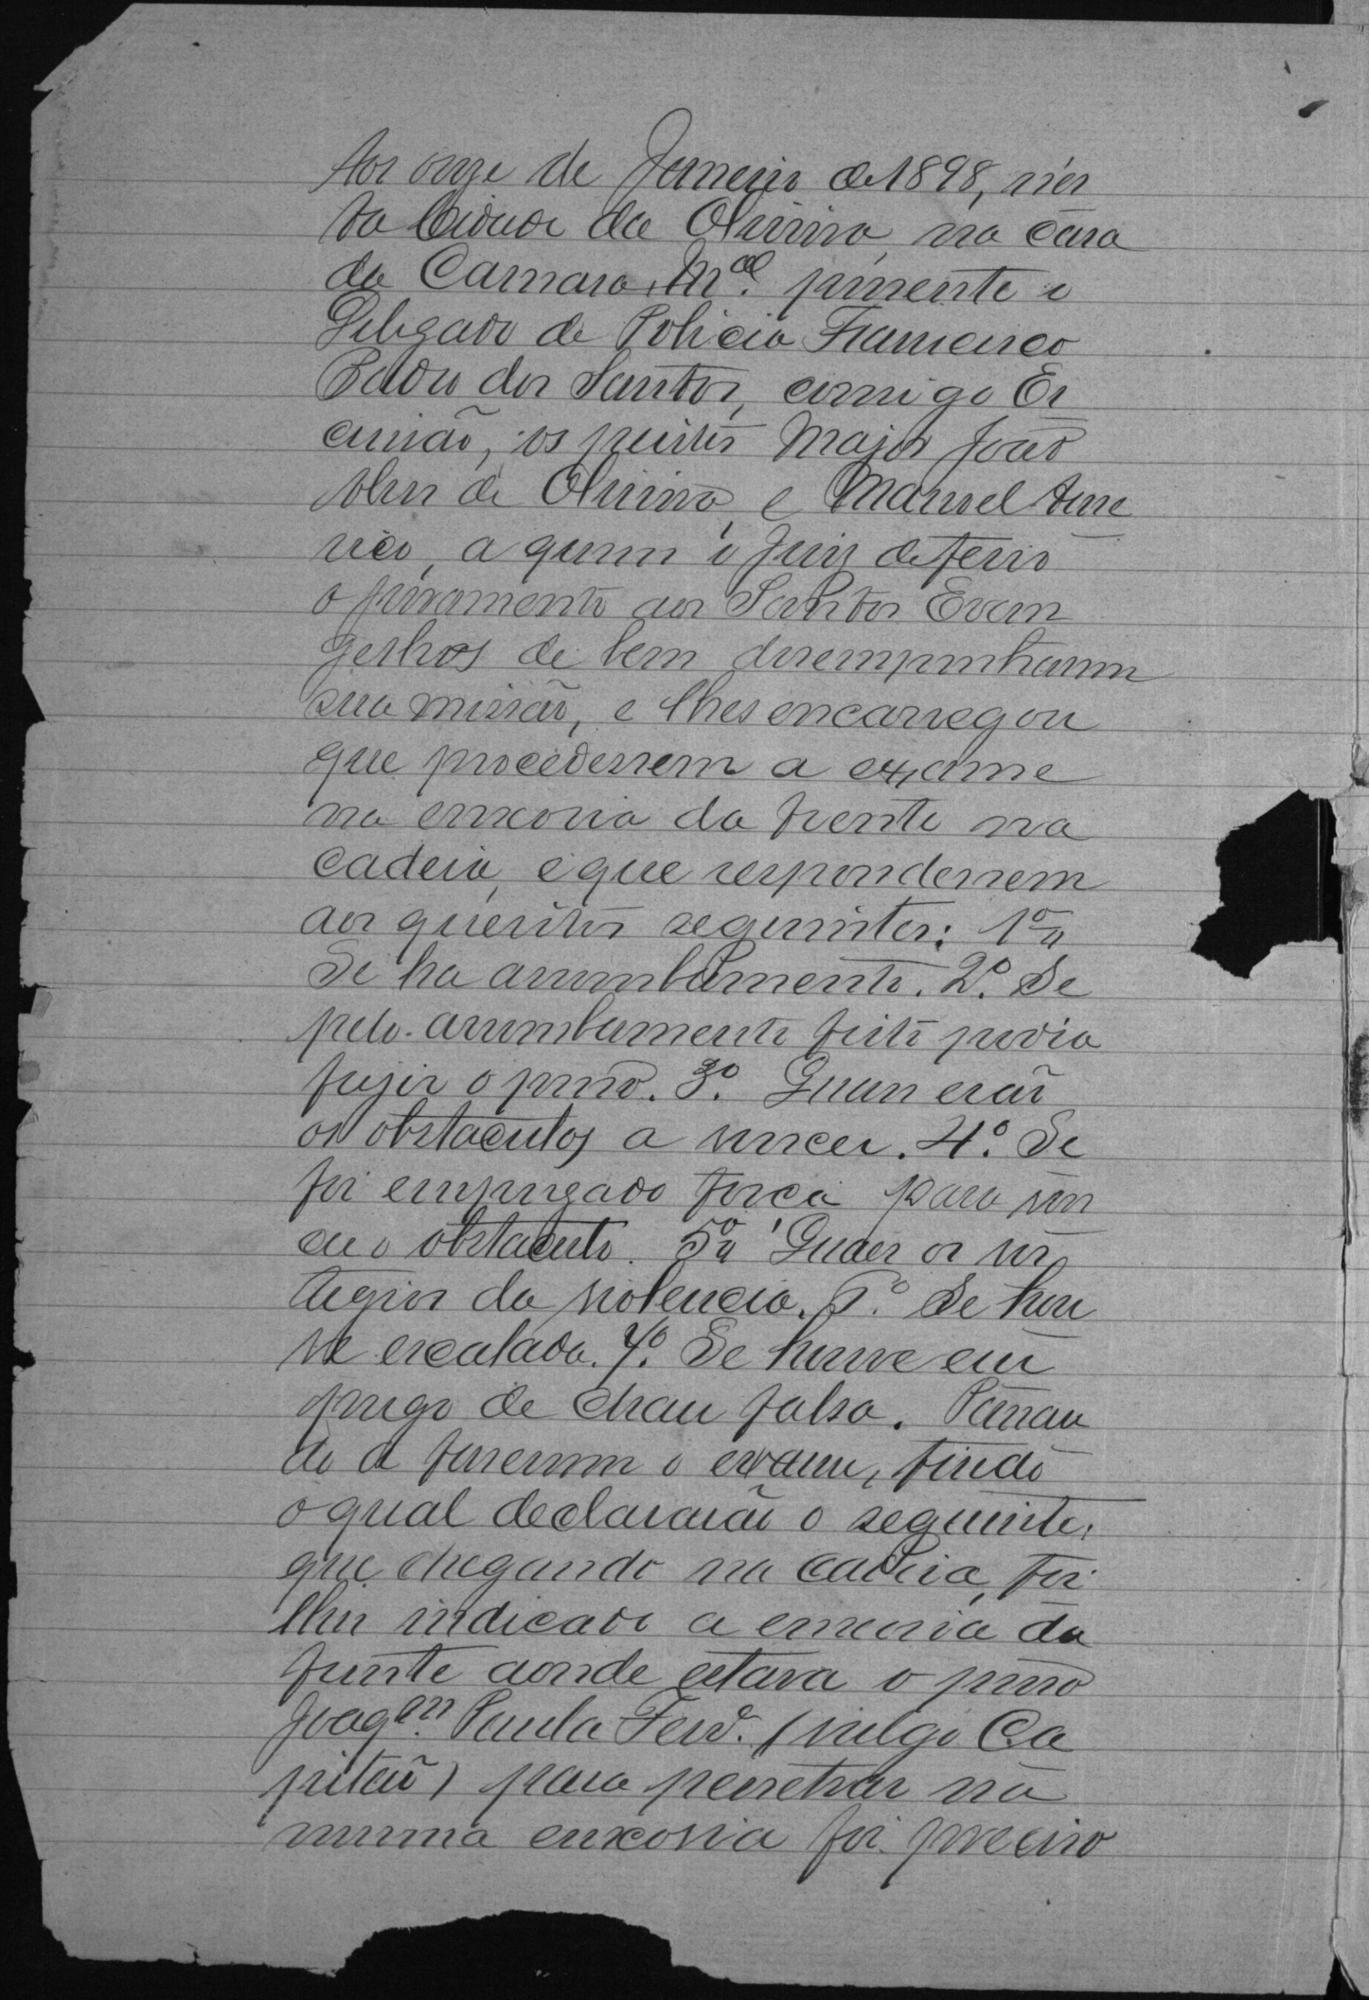 Aos onze de Janeiro de 1898, nes
ta Cidade da Oliveira, na casa
da Camara M.al presente o
Delegado de Policia Francisco
Pedro dos Santos, comigo Es
crivão, os peritos Major João
Alves de Oliveira, e Manoel Ame
rico, a quem o Juiz deferio
o juramento aos Santos Evan
gelhos de bem desempenharem
sua missão, e lhes encarregou
que procedessem a exame
na enxovia da frente na
cadeia, e que respondessem
aos quesitos seguintes: 1º
Se ha arrombamento. 2º. Se
pelo arrombamento feito podia
fugir o preso. 3º. Quaes erão
os obstaculos a vencer. 4º. Se
foi empregado força para ven
cer o obstaculo. 5º Quaes os ves
tegios da violencia. 6º. Se hou
ve escalada. 7º. Se houve em
prego de chave falsa. Passan
do a fazerem o exame, findo
o qual declararão o seguinte,
que chegando na cadeia, foi
lhes indicado a enxovia da
frente aonde estava o preso
Joaq.m Paula Ferr.ª (vulgo Ca
pitão) para penetrar na
mesma enxovia foi preciso